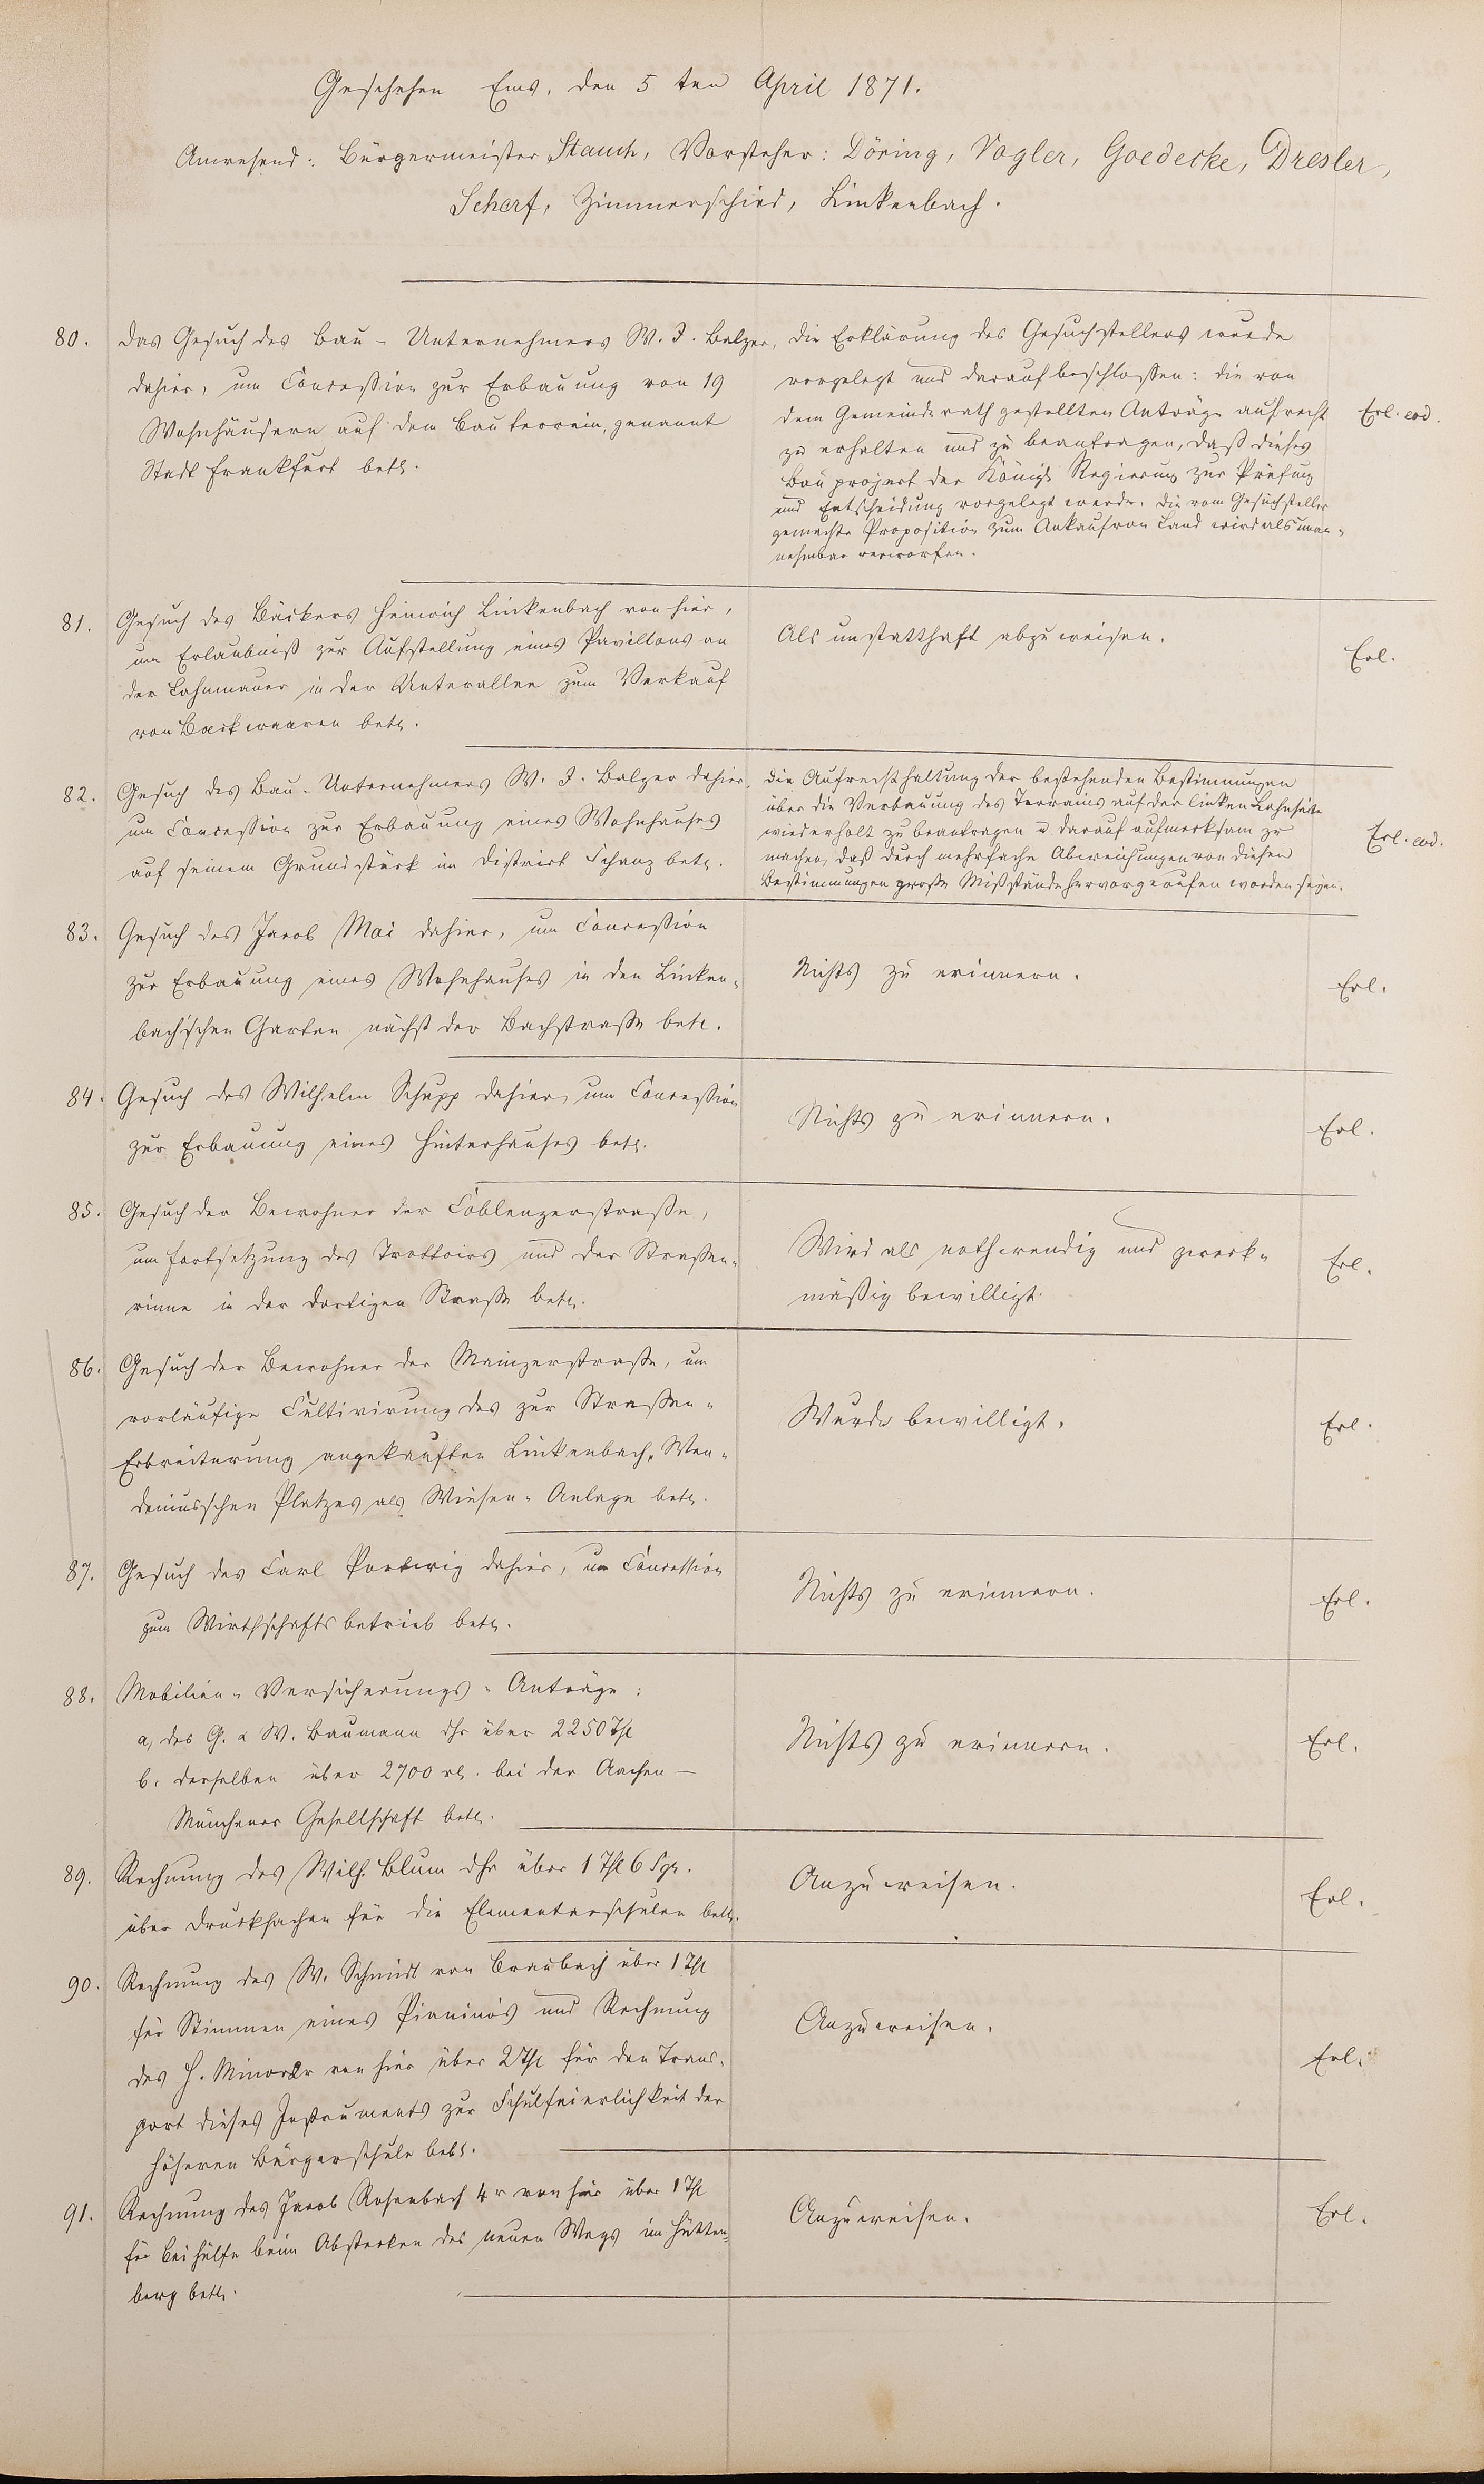 Geschehen Ems, den 5ten April 1871.
Anwesend: Bürgermeister Stauch, Vorsteher: Döring, Vogler, Goedecke, Dresler,
Scherf, Zimmerschied, Linkenbach.
80. Das Gesuch des Bau-Unternehmers W. J. Balzer,
dahier, um Concession zur Erbauung von 19
Wohnhäusern auf dem Bauterrain, genannt
Stadt Frankfurt betr.
Die Erklärung des Gesuchstellers wurde
vorgelegt und darauf beschlossen: die von
dem Gemeinderath gestellten Anträge aufrecht
zu erhalten und zu beantragen, daß dieses
Bauproject der Königl. Regierung zur Prüfung
und Entscheidung vorgelegt werde. Die vom Gesuchsteller
gemachte Proposition zum Ankauf von Land wird als unan-
nehmbar verworfen.
Erl. eod.
81. Gesuch des Bäckers Heinrich Linkenbach von hier,
um Erlaubniß zur Aufstellung eines Pavillons an
der Lahnmauer in der Unterallee zum Verkauf
von Backwaaren betr.
Als unstatthaft abzuweisen.
Erl.
82. Gesuch des Bau-Unternehmers W. J. Balzer dahier,
um Concession zur Erbauung eines Wohnhauses
auf seinem Grundstück im District Schanz betr.
Die Aufrechthaltung der bestehenden Bestimmungen
über die Verbauung des Terrains auf der linken Lahnseite
wiederholt zu beantragen u. darauf aufmerksam zu
machen, daß durch mehrfache Abweichungen von diesen
Bestimmungen große Mißstände hervorgerufen worden seyen.
Erl. eod.
83. Gesuch des Jacob Mai dahier, um Concession
zur Erbauung eines Wohnhauses in den Linken-
bach'schen Garten nächst der Bachstraße betr.
Nichts zu erinnern.
Erl.
84. Gesuch des Wilhelm Schupp dahier, um Concession
zur Erbauung eines Hinterhauses betr.
Nichts zu erinnern.
Erl.
85. Gesuch der Bewohner der Coblenzerstraße,
um Fortsetzung des Trottoirs und der Straßen-
rinne in der dortigen Straße betr.
Wird als nothwendig und zweck-
mäßig bewilligt.
Erl.
86. Gesuch der Bewohner der Mainzerstraße, um
vorläufige Cultivirung des zur Straßen-
Erbreiterung angekauften Linkenbach, Wen-
deniusschen Platzes als Wiesen-Anlage betr.
Wurde bewilligt.
Erl.
87. Gesuch des Carl dahier, um Concession
zum Wirthschaftsbetrieb betr.
Nichts zu erinnern.
Erl.
88. Mobilien-Versicherungs-Anträge:
a, des G. & W. Baumann dhr über 2250 Thl
b, derselben über 2700 rl. bei der Aachen-
Münchener Gesellschaft betr.
Nichts zu erinnern.
Erl.
89. Rechnung des Wilh. Blum dhr über 1 Thl 6 Sgr.
über Drucksachen für die Elementarschulen betr.
Anzuweisen.
Erl.
90. Rechnung des W. Schmidt von Braubach über 1 Thl
für Stimmen eines Pianino's und Rechnung
des H. von hier über 2 Thl für den Trans-
port dieses Instruments zur Schulfeierlichkeit der
höheren Bürgerschule betr.
Anzuweisen.
Erl.
91. Rechnung des Jacob Rosenbach 4r von hier über 1 Thl
für Beihülfe beim Abstecken des neuen Wegs im Hütten-
berg betr.
Anzuweisen.
Erl.